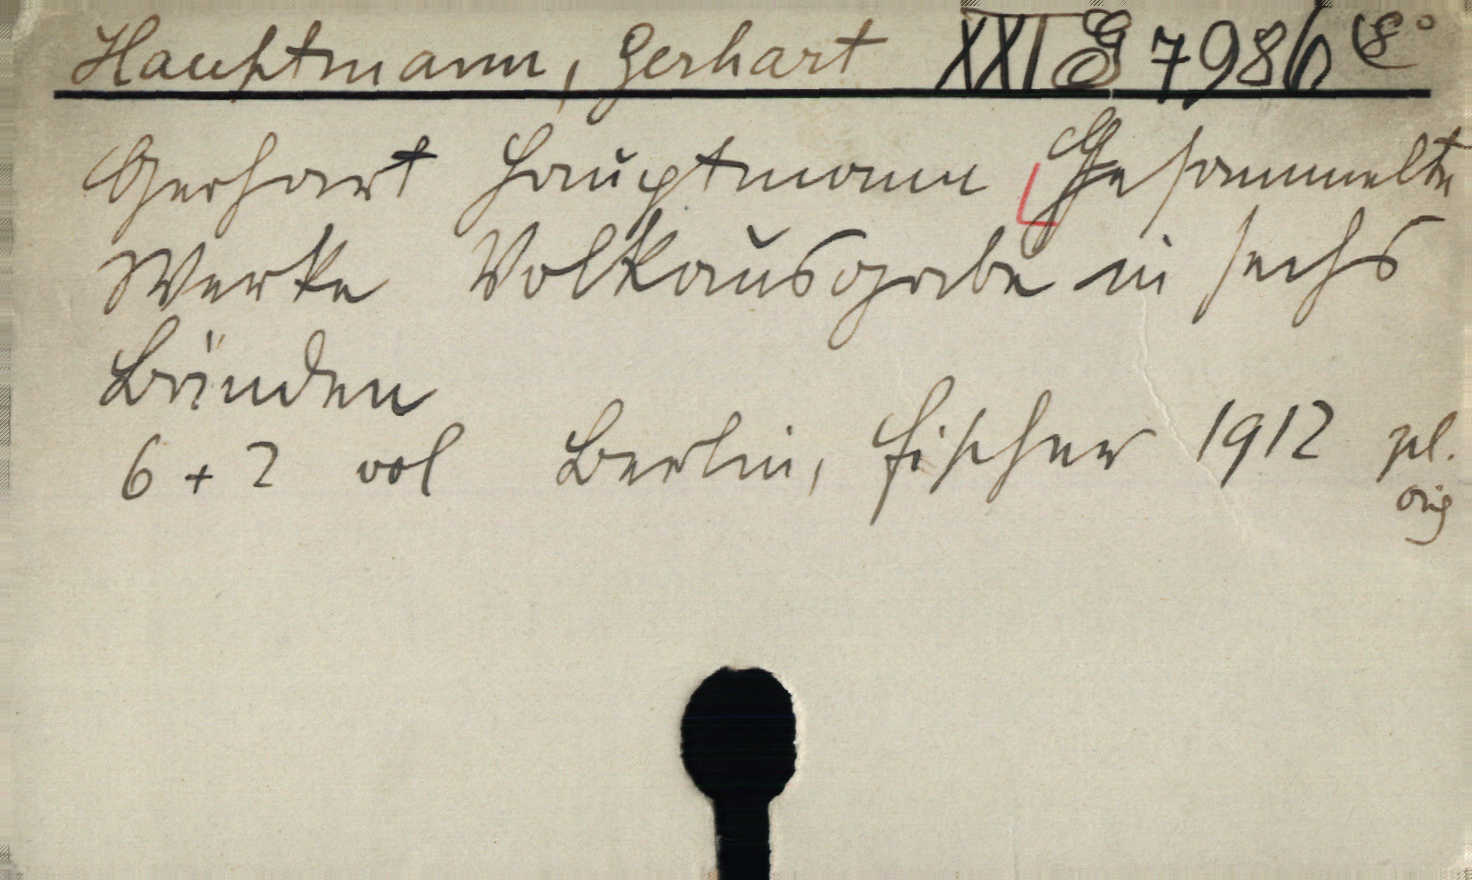 Hauptmann, Gerhart XXI G 7986 8°
Gerhart Hauptmann Gesammelte
Werke Volkausgabe in sechs
Bänden
6 + 2 vol Berlin, Fischer 1912 pl.
orig